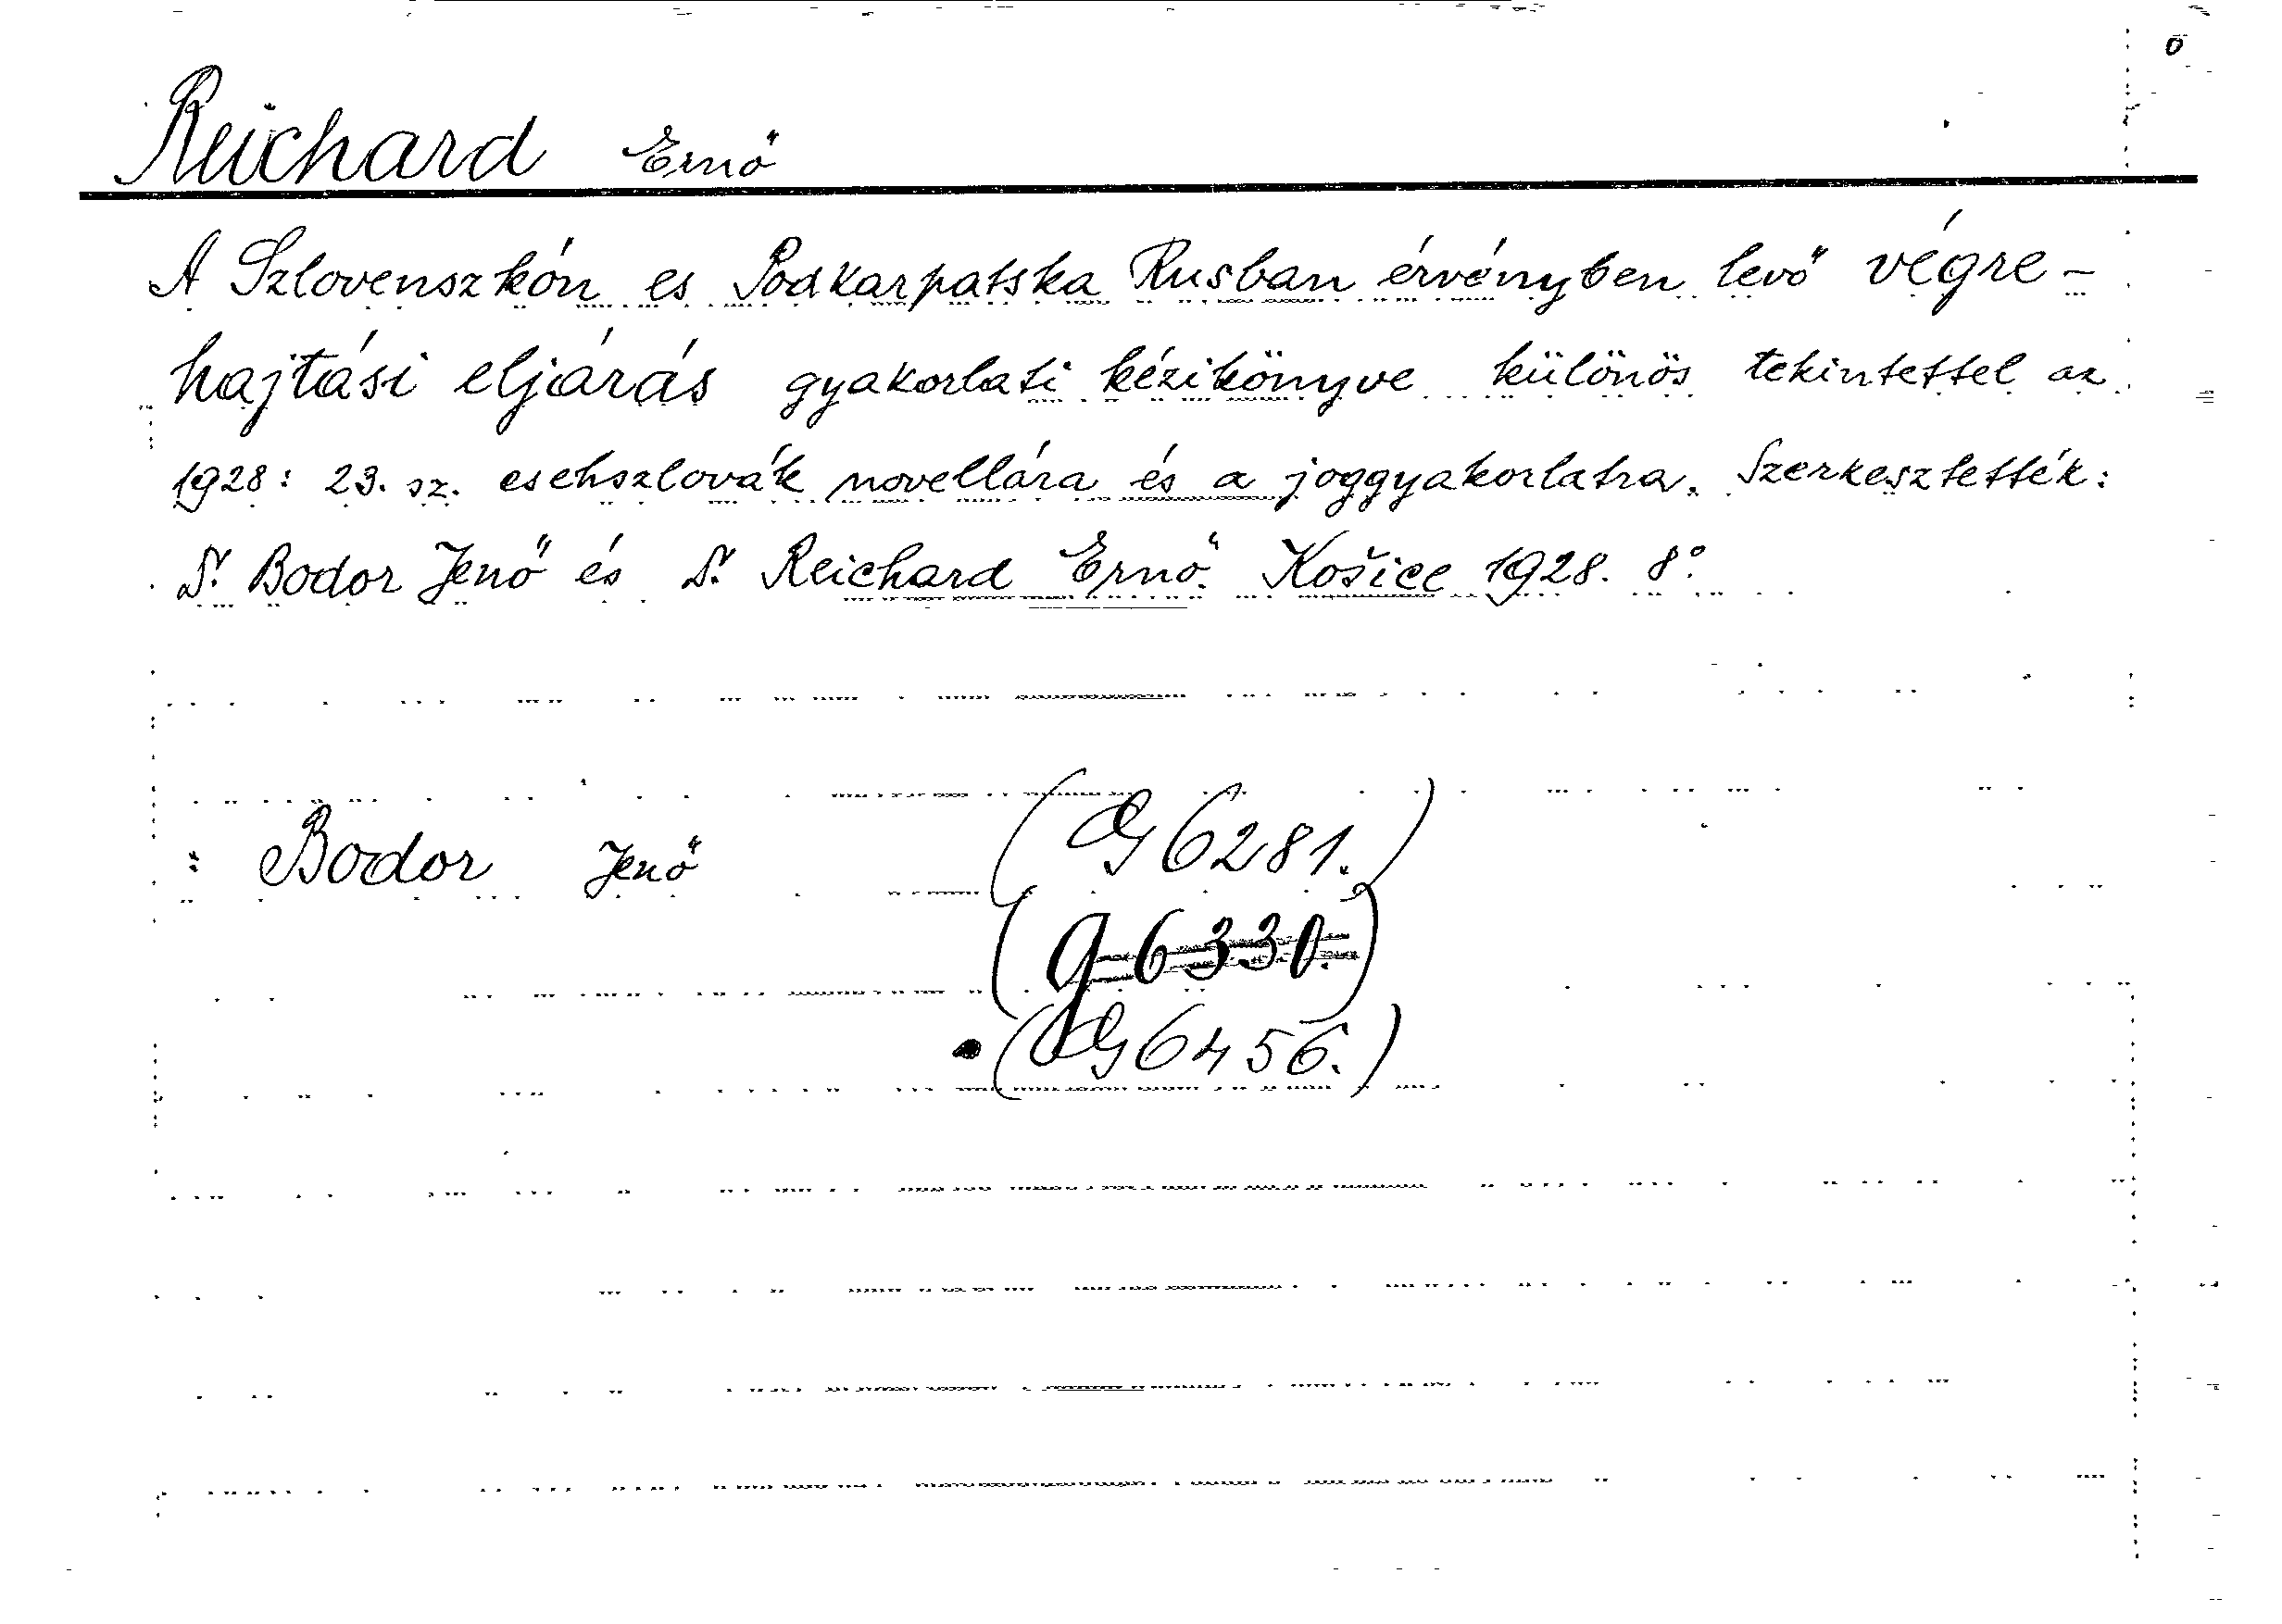 Reichard Ernő
A Szlovenszkón es Podkarpatska Rusban érvényben levő végre-
hajtási eljárás gyakorlati kézikönyve különös tekintettel az
1928: 23. sz. csehszlovák novellára és a joggyakorlatra. Szerkesztették:
Dr. Bodor Jenő és Dr. Reichard Ernő. Košice 1928. 8°.
: Bodor Jenő (G 6281.)
(g 6330.)
(G 6456.)